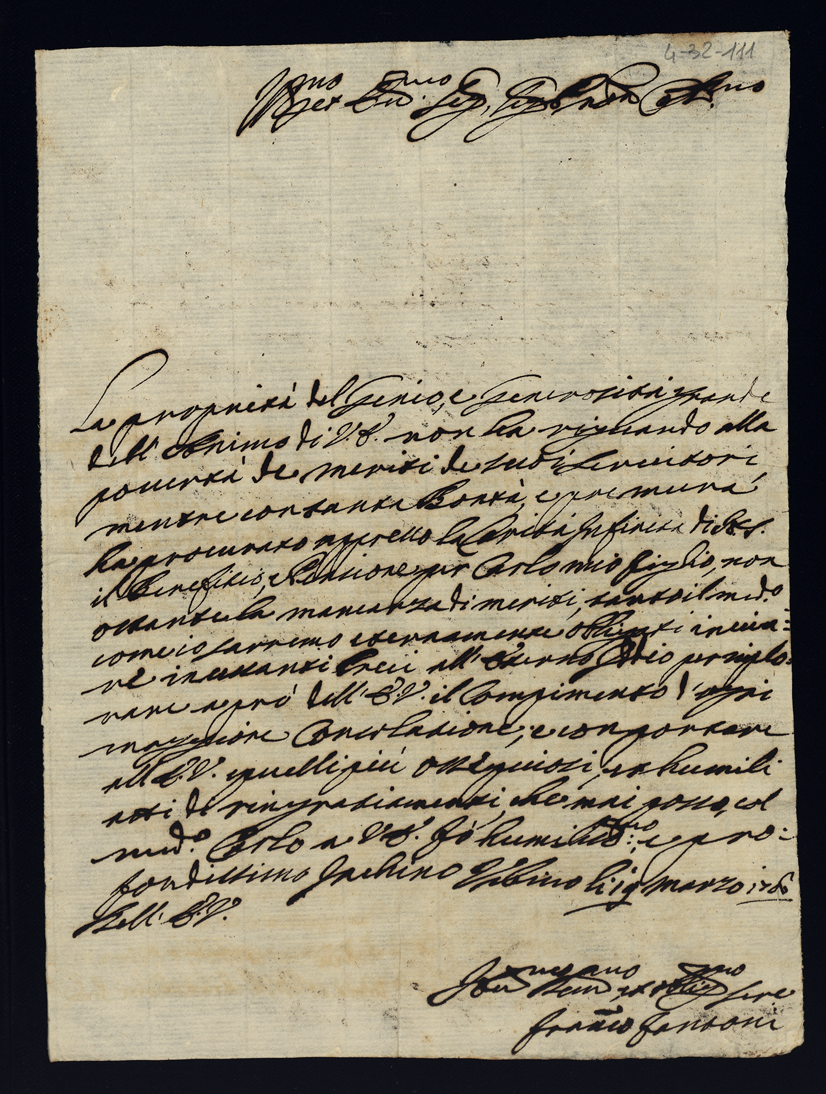 4-32-111
Ill.mo et Ecc.mo Sig. Sig. Pron Col.mo
La propria del Genio, e Generosità grande
dell'Animo di V.E. non ha riguardo alla
povertà de meriti de suoi servitori
mentre con tanta Bontà, e premura
ha procurato appresso la Carità Infinita di
il Beneficio, e Pensione per Carlo mio figlio, non
ostante la mancanza di meriti, tanto il med.o
come io saremo eternamente obligati invia=
re incessanti Preci all'Eterno Iddio per implo=
rare a prò dell'E.V. il Compimento d'ogni
maggiore Consolatione, e con portare
all'E.V. quelli più ossequiosi, et humili
atti de ringratiamenti, che mai posso, col
med.o Carlo a V.E. fò humiliss.mo, e pro=
fondissimo Inchino Urbino li 19 marzo
Dell'E.V.
ser.e
Fran.co Fantoni